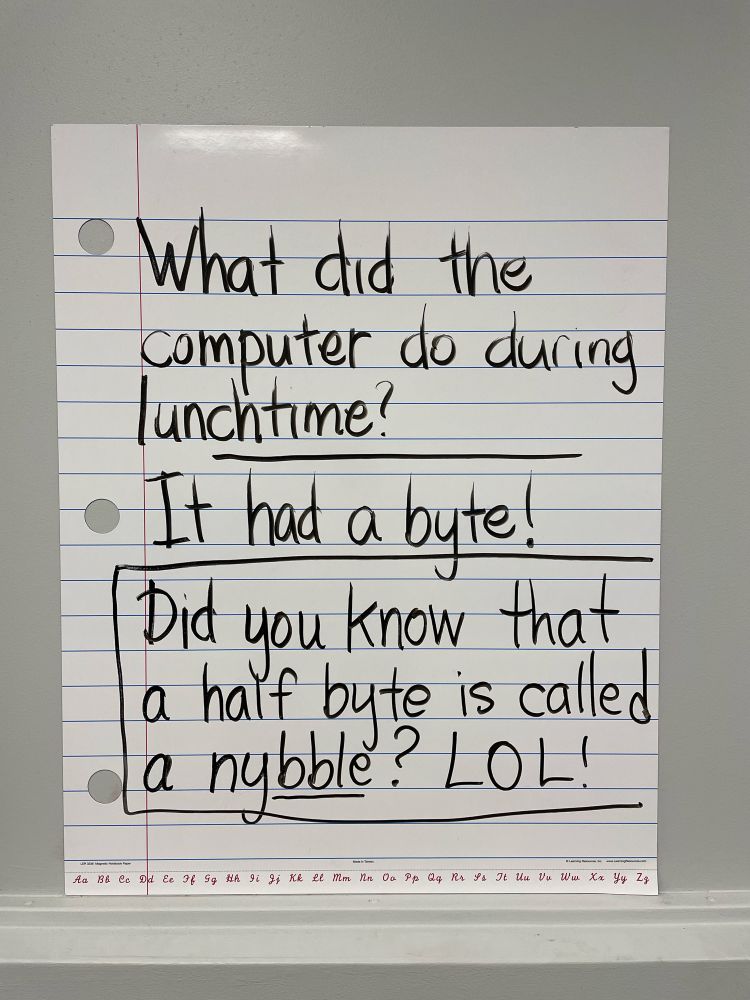 What did the
computer do during
lunchtime?
It had a byte!
Did you know that
a half byte is called
a nybble? LOL!
LER 3238 Magnetic Notebook Paper Made in Taiwan © Learning Resources, Inc. www.LearningResources.com
Aa Bb Cc Dd Ee Ff Gg Hh Ii Jj Kk Ll Mm Nn Oo Pp Qq Rr Ss Tt Uu Vv Ww Xx Yy Zz